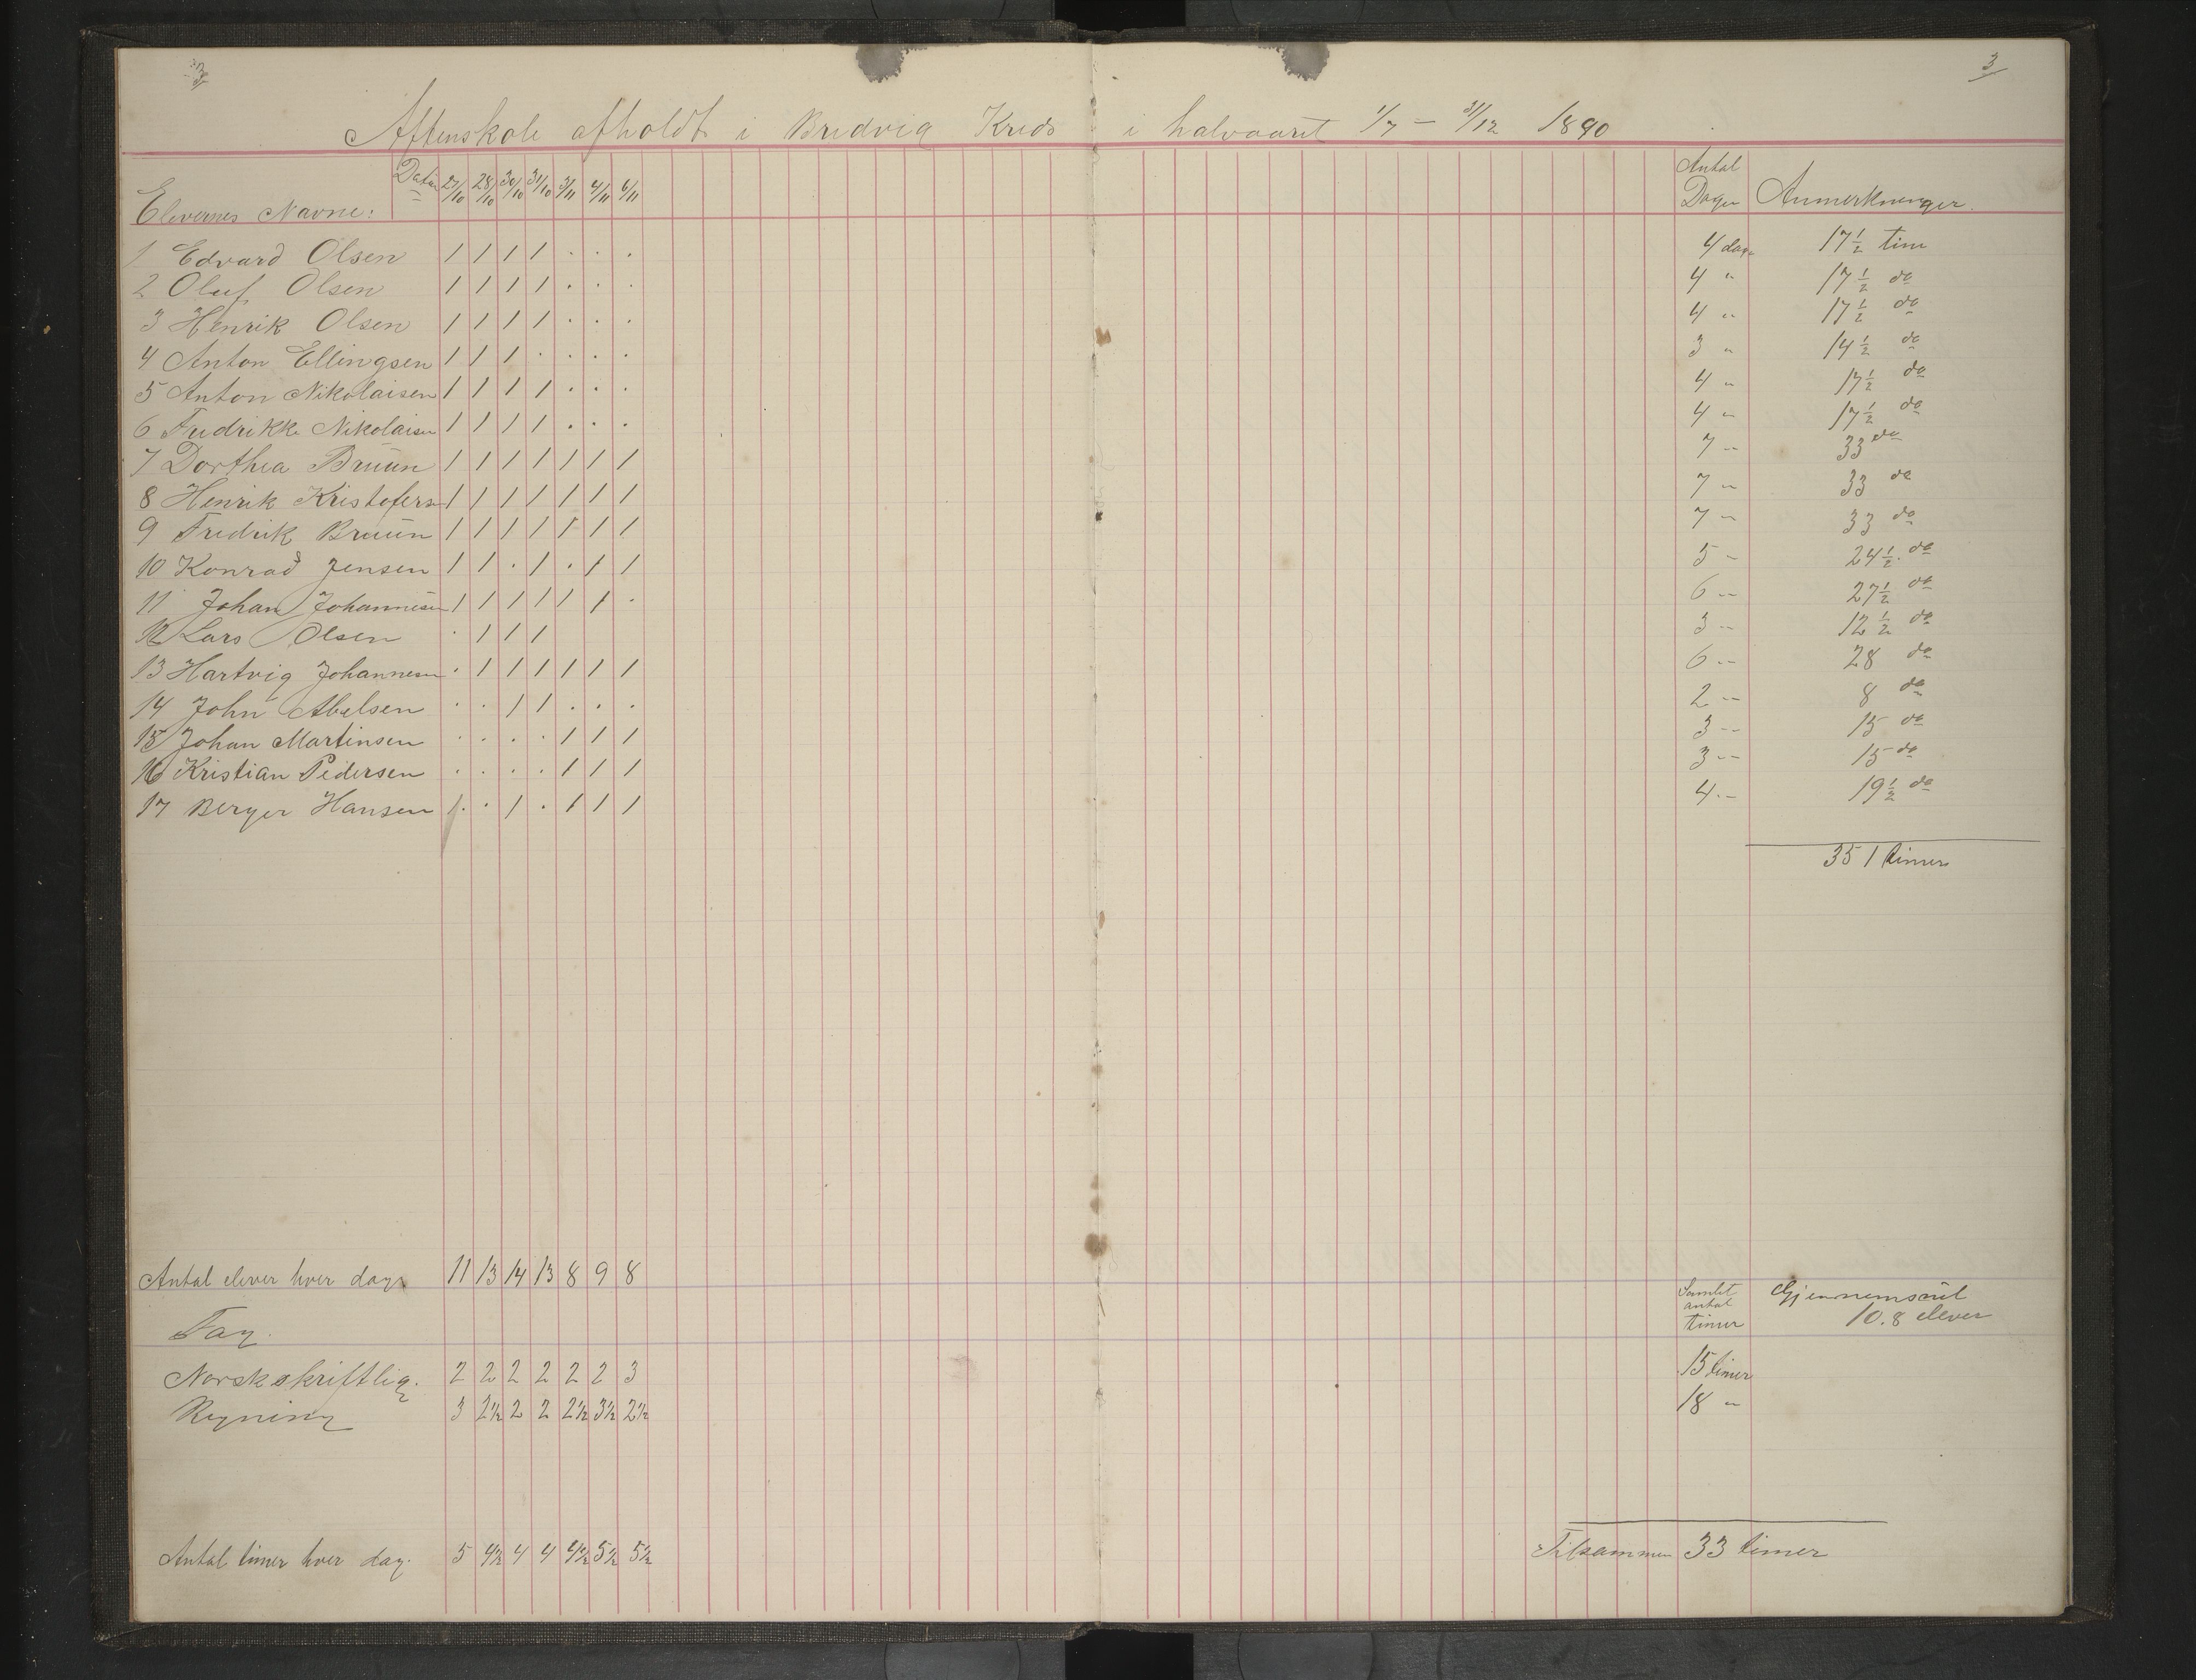 3 3
Aftenskole afholdt i Bredvig Kreds i halvaaret 1/7 - 31/12 1890
Elevernes Navne: Datum 27/10 28/10 30/10 31/10 3/11 4/11 6/11 Antal Dager Anmerkninger.
1 Edvard Olsen 1 1 1 1 . . . 4 dage 17 1/2 tim
2 Oluf Olsen 1 1 1 1 . . . 4 " 17 1/2 do
3 Henrik Olsen 1 1 1 1 . . . 4 " 17 1/2 do
4 Anton Ellingsen 1 1 1 . . . . 3 " 14 1/2 do
5 Anton Nikolaisen 1 1 1 1 . . . 4 " 17 1/2 do
6 Fredrikke Nikolaisen 1 1 1 1 . . . 4 " 17 1/2 do
7 Dorthea Bruun 1 1 1 1 1 1 1 7 " 33 do
8 Henrik Kristofersen 1 1 1 1 1 1 1 7 " 33 do
9 Fredrik Bruun 1 1 1 1 1 1 1 7 " 33 do
10 Konrad Jensen 1 1 . 1 . 1 1 5 " 24 1/2 do
11 Johan Johannesen 1 1 1 1 1 1 . 6 " 27 1/2 do
12 Lars Olsen . 1 1 1 3 " 12 1/2 do
13 Hartvig Johannesen . 1 1 1 1 1 1 6 " 28 do
14 John Abelsen . . 1 1 . . . 2 " 8 do
15 Johan Martinsen . . . . 1 1 1 3 " 15 do
16 Kristian Pedersen . . . . 1 1 1 3 " 15 do
17 Berger Hansen . . 1 . 1 1 1 4 " 19 1/2 do
351 timer
Antal elever hver dag. 11 13 14 13 8 9 8
Samlet antal timer Gjennemsnit 10.8 elever
Fag.
Norsk skriftlig. 2 2 2 2 2 2 3 15 timer
Regning 3 2 1/2 2 2 2 1/2 3 1/2 2 1/2 18 "
Antal timer hver dag. 5 4 1/2 4 4 4 1/2 5 1/2 5 1/2 Tilsammen 33 timer